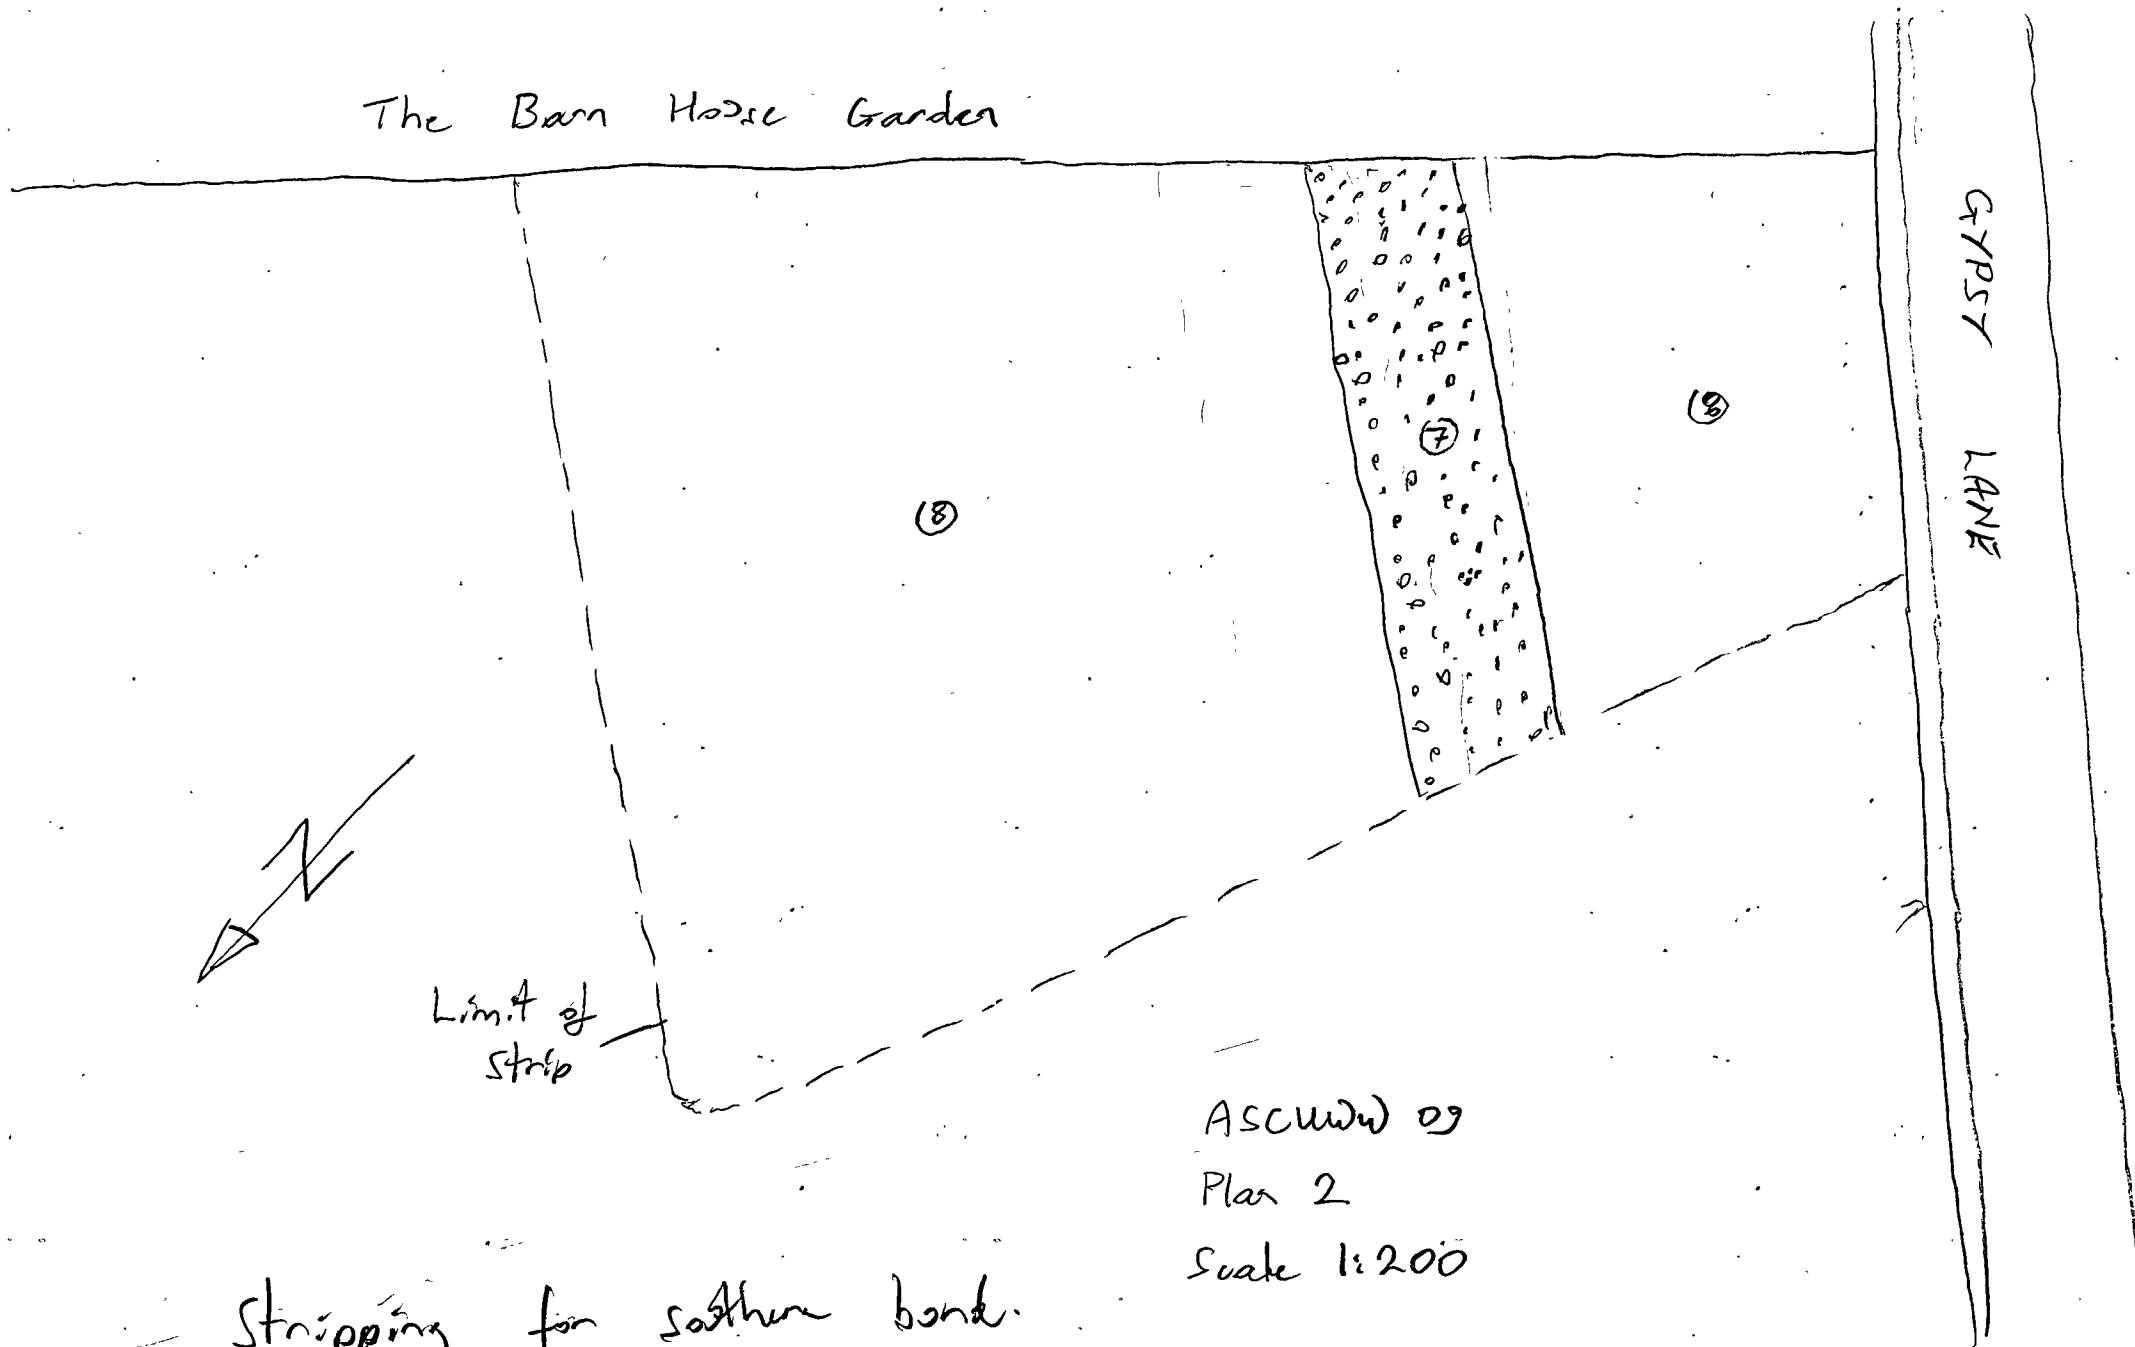 The Barn House Garden
GYPSY LANE
8
7
8
N
Limit of
strip
ASCUWW 09
Plan 2
Scale 1:200
Stripping for southern bond.